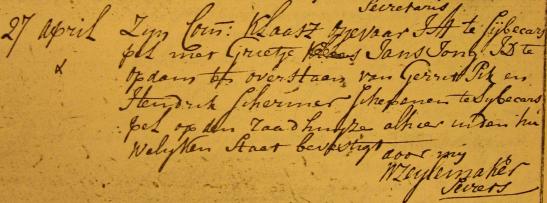 Secretaris
27 april Zyn Corn: Klaasz opgevaar J:M te Sijbecars
pel met Grietje Klaas Jans Jong J:D te
opdam ten overstaan van Gerrit Pik en
Hendrik Schermer Schepenen te Sybecars
pel op den raadhuyze alhier in den hu
welyken Staat bevestigt
door my
W Zeylemaker
Secrets